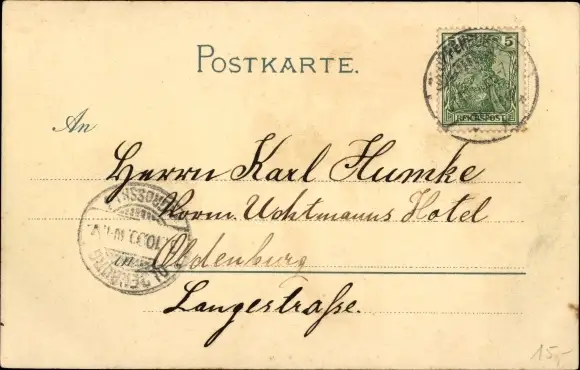 POSTKARTE.
5
REICHSPOST
An
Herrn Karl Humke
Vorm. Uchtmanns Hotel
Oldenburg
Langestraße.
OLDENBURG
15,-